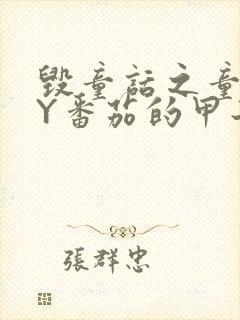 毁童话之童
Y番茄的甲
張群忠